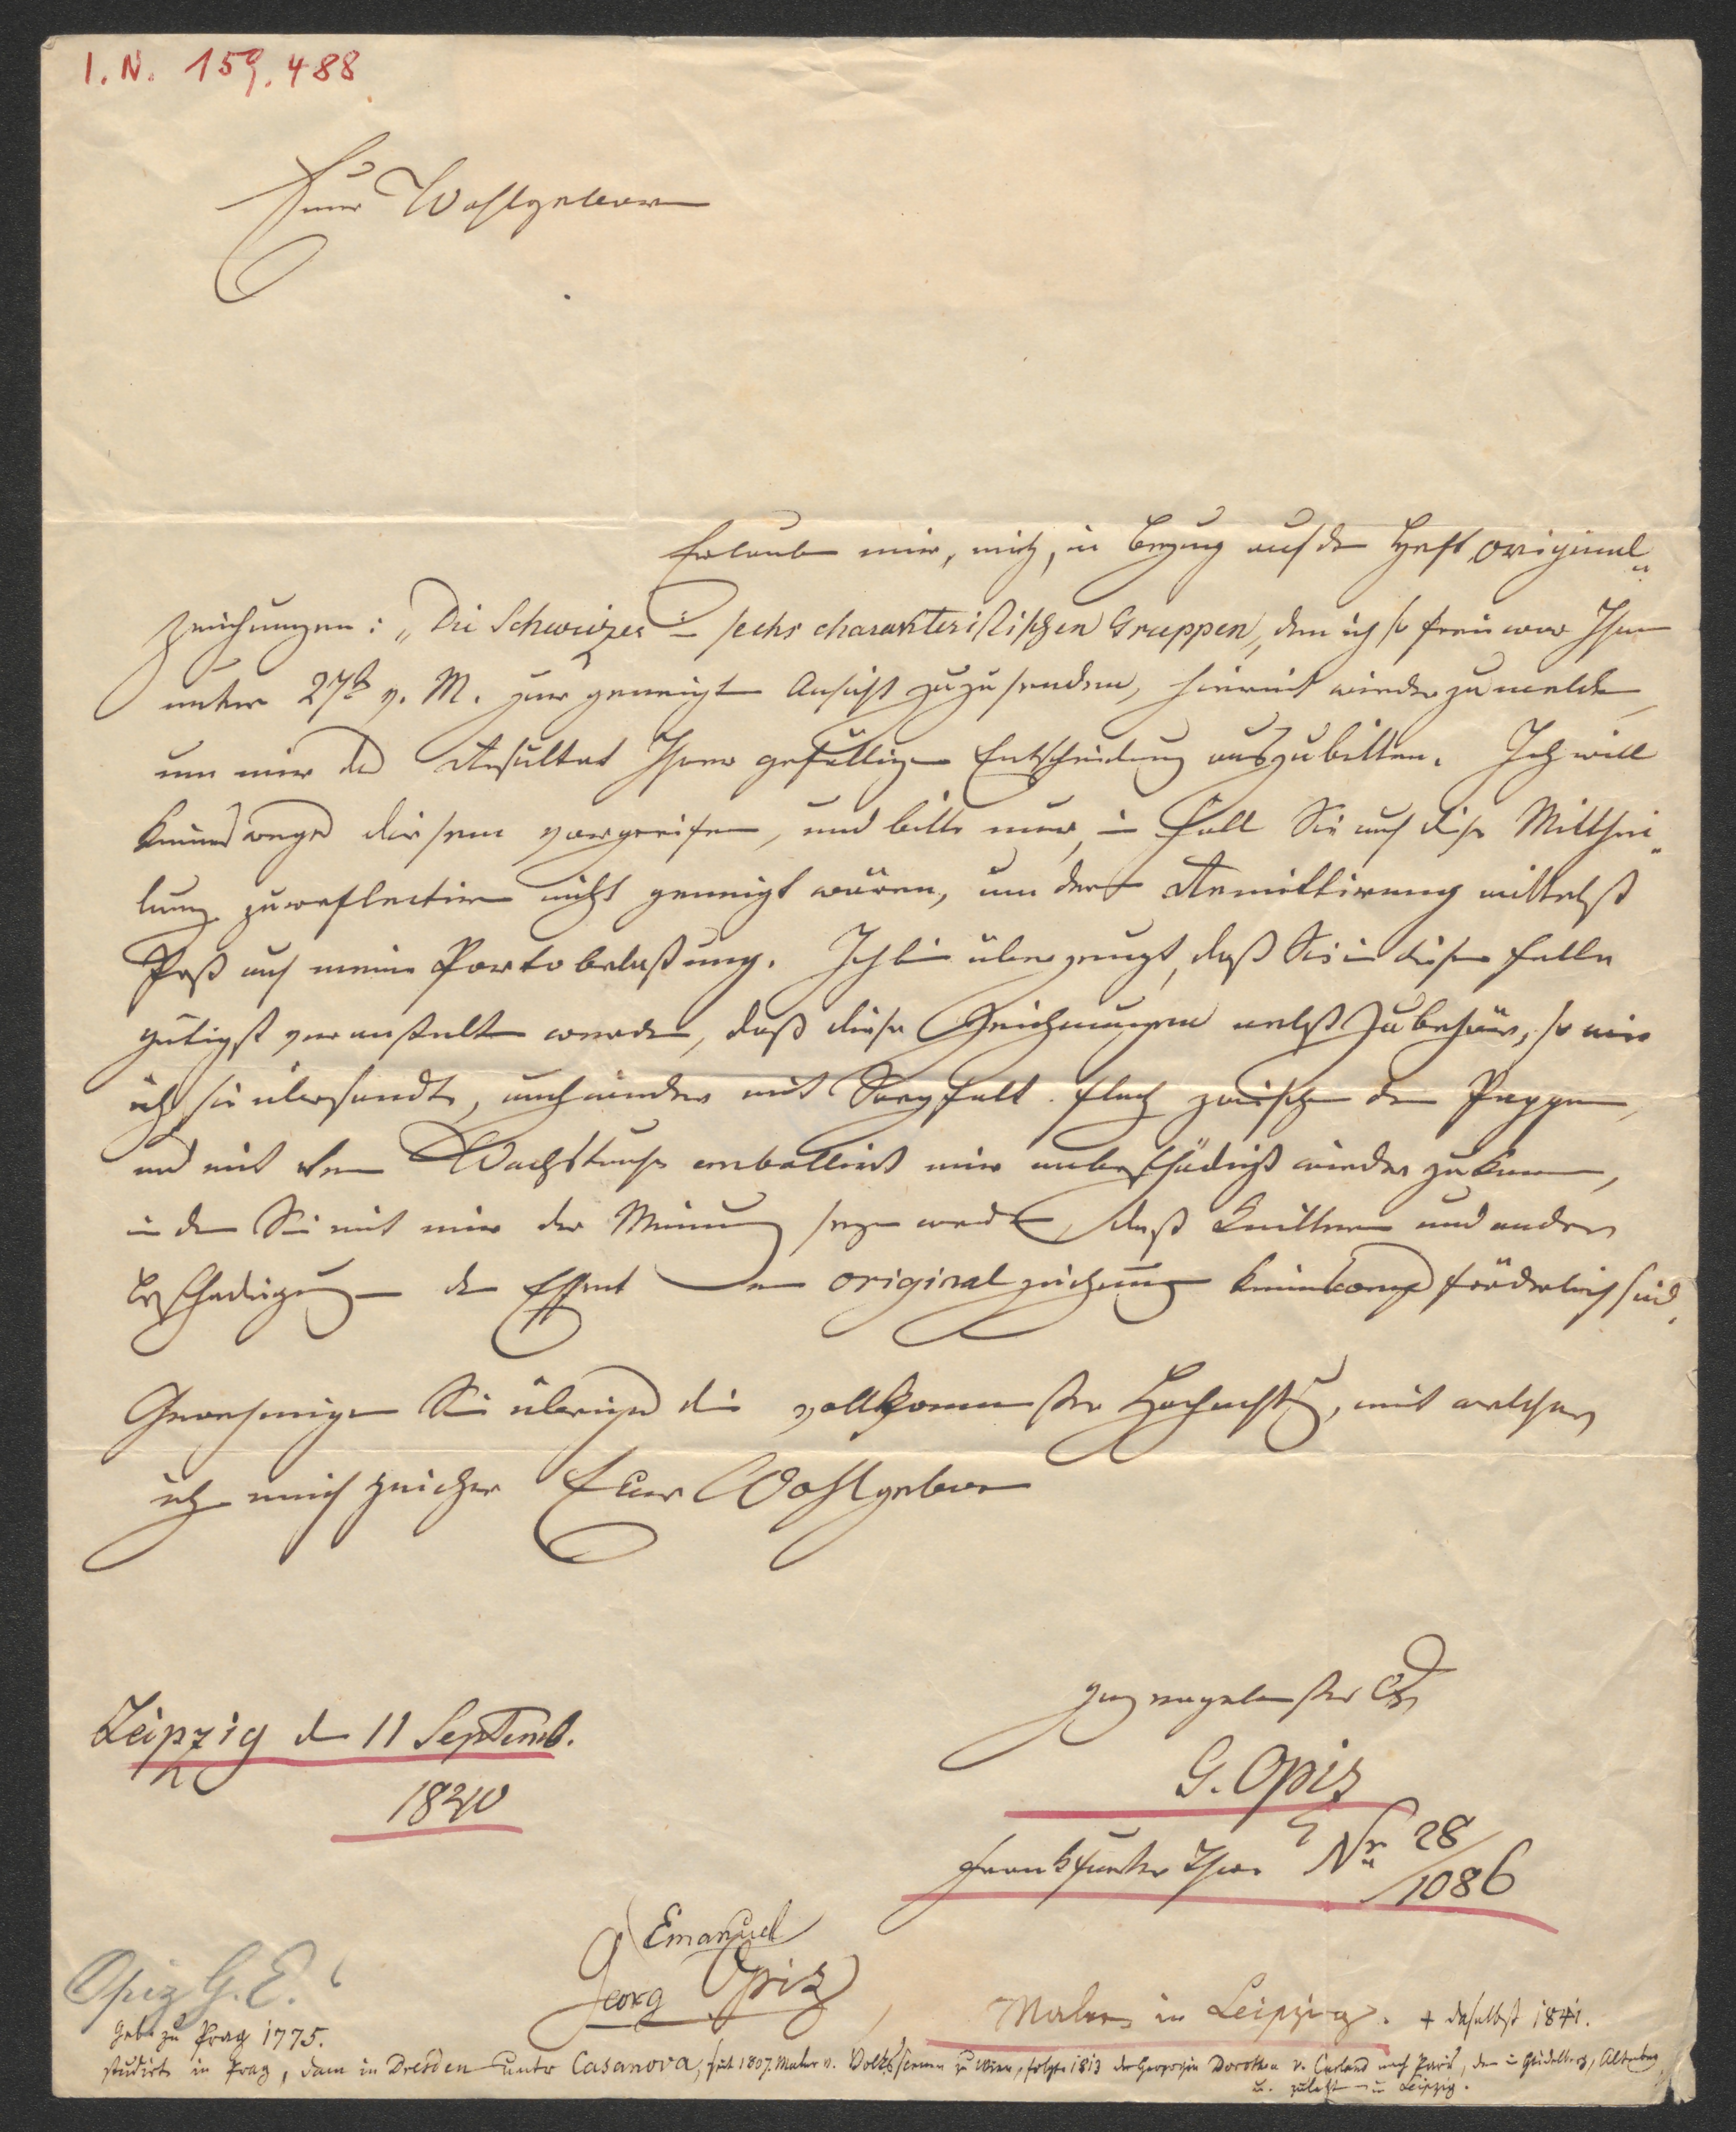 I. N. 159.488
Euer Wohlgeboren
Erlaube mir, mich, in Bezug auf das Heft original„
zeichnungen: „Die Schweizer in sechs charakteristischen Gruppen, den ich so frei war Ihnen
unter 27t v. M. zur geneigten Ansicht zuzusenden, hiermit wieder zu melden,
um mir das Resultat Ihrer gefälligen Entscheidung auszubitten. Ich will
keineswegs diesem vorgreifen, und bitte nur, im Fall Sie auf diese Mitthei„
lung zu reflectiren nicht geneigt wären, um deren Remittirung mittelst
Post auf meine Portobelastung. Ich bin überzeugt, daß Sie in diesem Falle
gütigst veranstalten werden, daß diese Zeichnungen nebst Zubehör, so wie
ich sie übersandte, auch wieder mit Sorgfalt flach zwischen den Pappen,
und mit dem Wachstuche emballirt mir unbeschädigt wieder zukommen,
indem Sie mit mir der Meinung seyn werden, daß Knillen und andere
Beschädigungen dem Effect von originalzeichnungen keineswegs förderlich sind.
Genehmigen Sie übrigens die vollkommenste Hochachtung, mit welcher
ich mich zeichne Euer Wohlgeboren
ganz ergebenster
Leipzig d 11 Septemb.
1840
G. Opiz
Frankfurter Thor Nr 28/1086
Emanuel
Georg Opiz, Maler in Leipzig. + daselbst 1841.
Opiz G. E.
Geb. zu Prag 1775.
studirte in Prag, dann in Dresden unter Casanova, seit 1807 Maler v. Volksscenen zu Wien, folgte 1813 der Herzogin Dorothea v. Curland nach Paris, dann in Heidelberg, Altenburg
u. zuletzt in Leipzig.